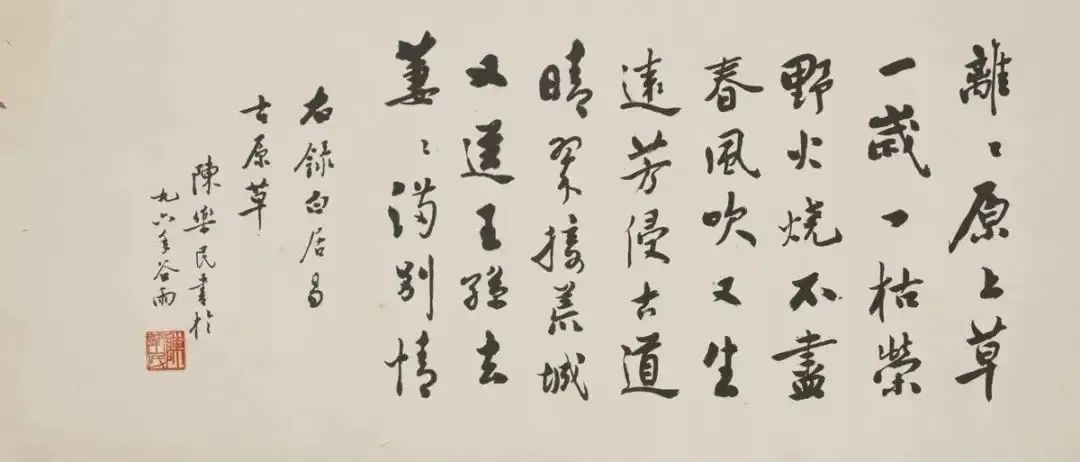 離〻原上草
一歲一枯榮
野火燒不盡
春風吹又生
遠芳侵古道
晴翠接荒城
又送王孫去
萋〻滿別情
右錄白居易
古原草
陳樂民書於
九六年谷雨